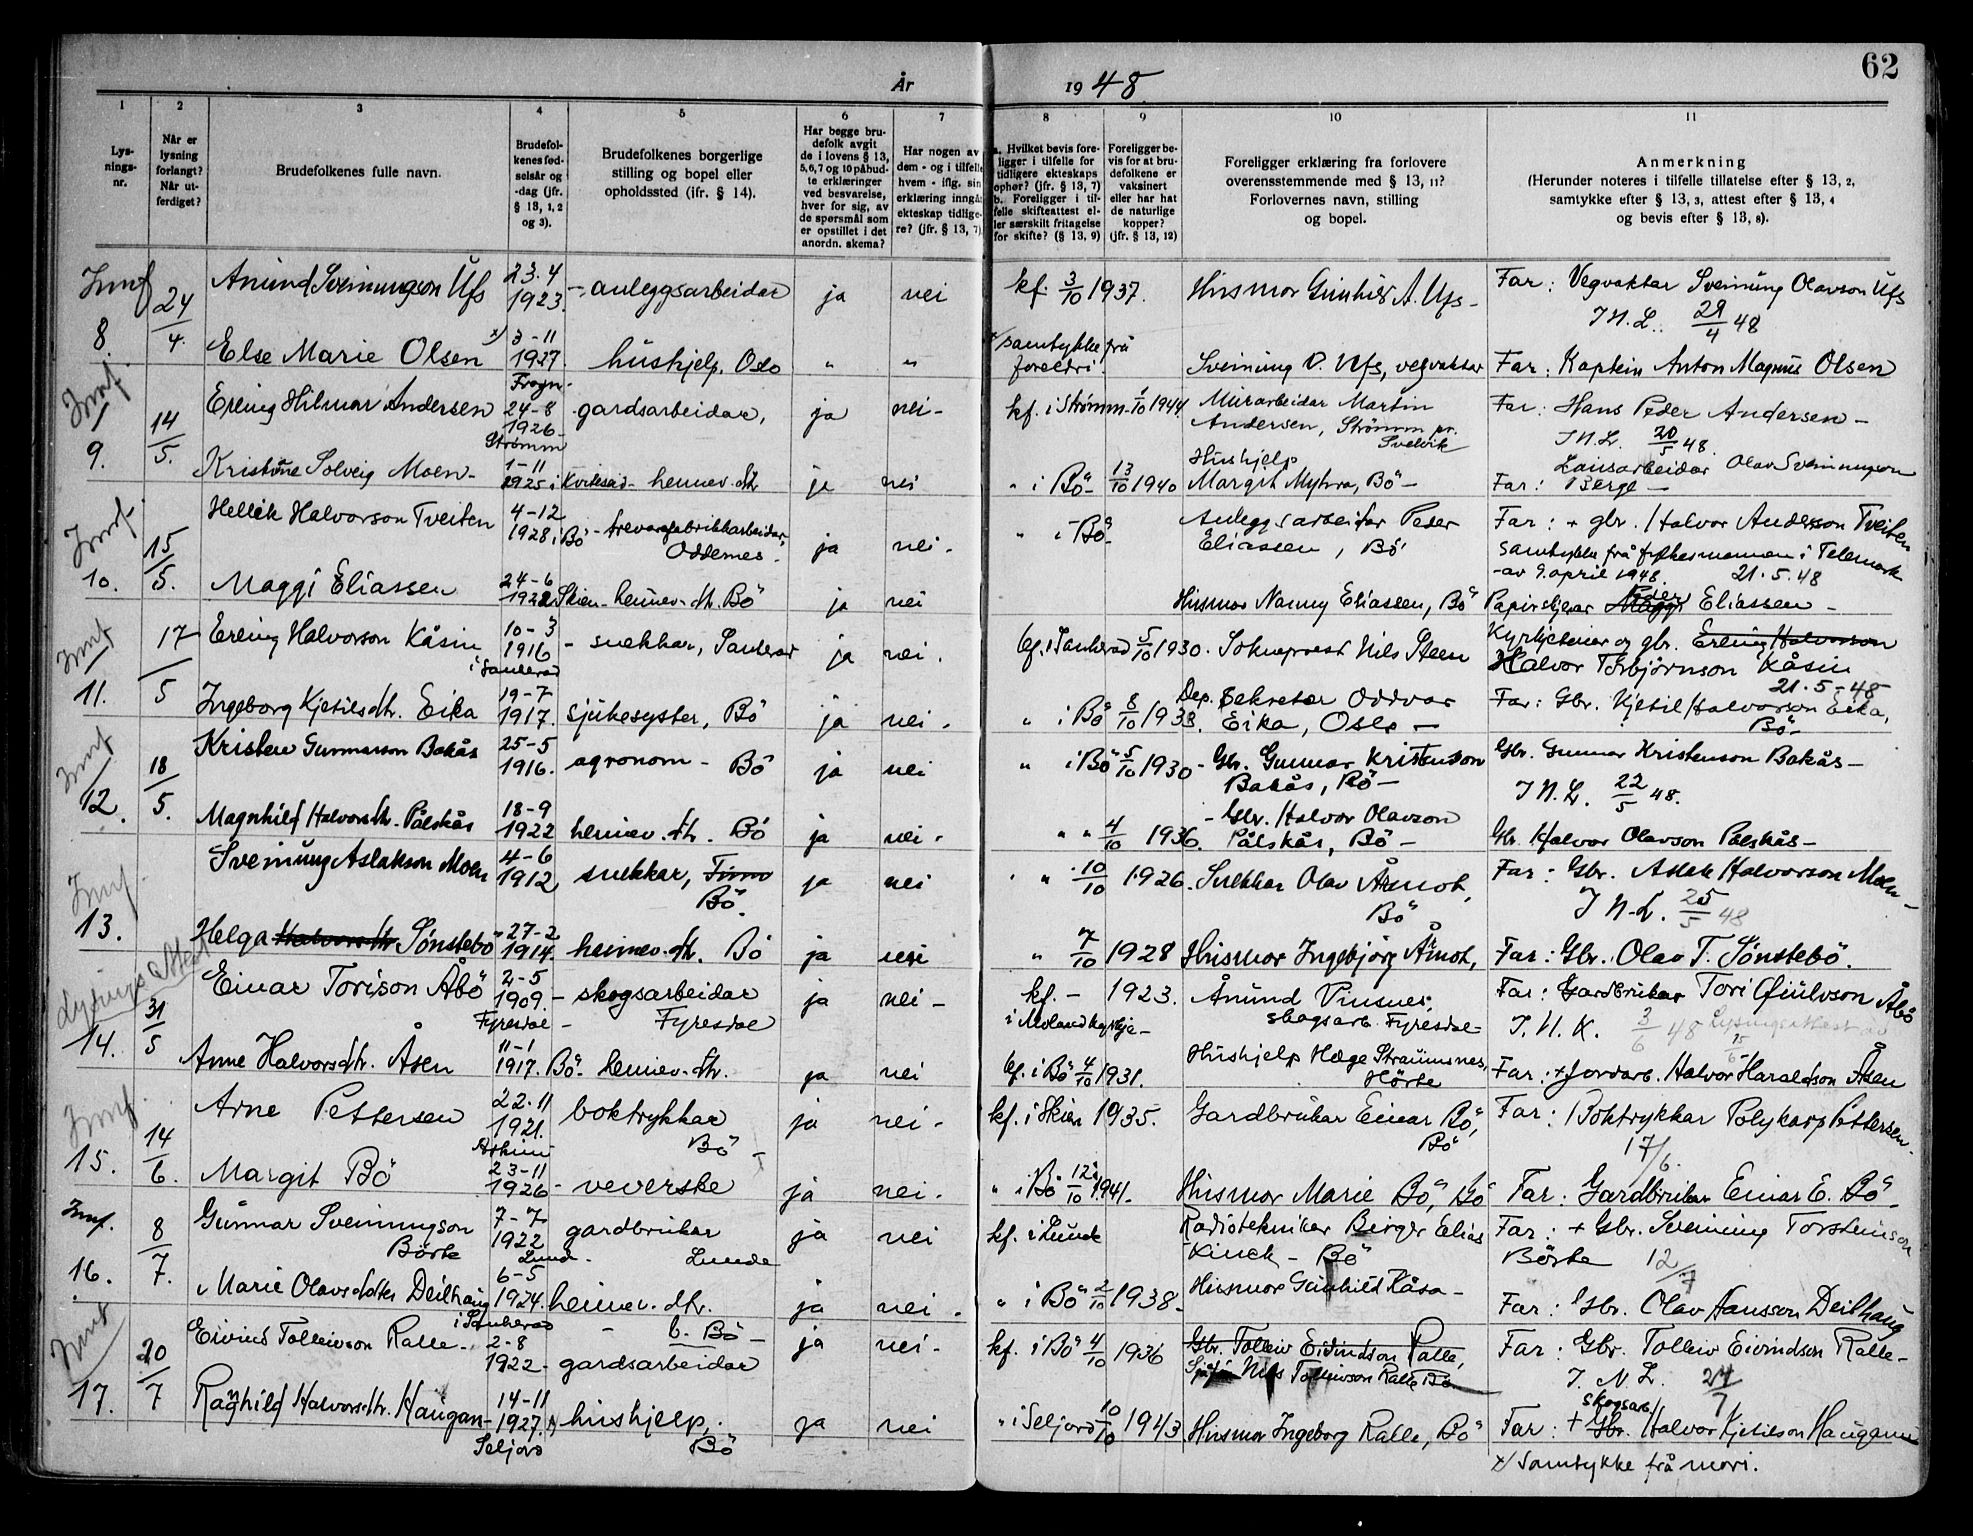 62
År 1948.
1 2 3 4 5 6 7 8 9 10 11
Lysnings-nr.
Når er lysning forlangt? Når utferdiget?
Brudefolkenes fulle navn.
Brudefolkenes fødselsår og -dag (jfr. § 13, 1, 2 og 3).
Brudefolkenes borgerlige stilling og bopel eller opholdssted (jfr. § 14).
Har begge brudefolk avgit de i lovens § 13, 5, 6, 7 og 10 påbudte erklæringer ved besvarelse, hver for sig, av de spørsmål som er opstillet i det anordn. skema?
Har nogen av dem - og i tilfelle hvem - iflg. sin erklæring inngått ekteskap tidligere? (jfr. § 13, 7)
a. Hvilket bevis foreligger i tilfelle for tidligere ekteskaps ophør? (jfr. § 13, 7) b. Foreligger i tilfelle skifteattest eller særskilt fritagelse for skifte? (§ 13, 9)
Foreligger bevis for at brudefolkene er vaksinert eller har hat de naturlige kopper? (jfr. § 13, 12)
Foreligger erklæring fra forlovere overensstemmende med § 13, 11? Forlovernes navn, stilling og bopel.
Anmerkning (Herunder noteres i tilfelle tillatelse efter § 13, 2, samtykke efter § 13, 3, attest efter § 13, 4 og bevis efter § 13, 8).
Innf 8. 24/4. Anund Sveinungson Ufs 23.4 1923. - anleggsarbeidar ja nei kf. 3/10 1937. Husmor Gunhild A. Ufs - Far: Vegvaktar Sveinung Olavson Ufs
I N. L. 29/4 48
Else Marie Olsen x) 3-11 1927. Frogn. hushjelp. Oslo " " x/ samtykke frå foreldri. Sveinung O. Ufs, vegvaktar Far: Kaptein Anton Magnus Olsen
Innf. 9. 14/5. Erling Hilmar Andersen 24-8 1926 - Strømm gardsarbeidar, ja nei - kf. i Strømm 1/10 1944. Murarbeidar Martin Andersen, Strømm pr. Svelvik Far: Hans Peder Andersen -
I N. L. 20/5 48.
Kristine Solveig Moen - 1-11 1925 i Kviteseid - heimev. dtr ja nei " i Bö - 13/10 1940 Hushjelp Margit Myhra, Bö - Far: Lausarbeidar Olav Sveinungson Berge -
Innf. 10. 15/5. Hellek Halvorson Tveiten 4-12 1928 i Bö - trevarefabrikkarbeidar, Oddernes. ja nei - " i Bö - Anleggsarbeidar Peder Eliassen, Bö Far: + gbr. Halvor Anderson Tveiten
samtykke frå fylkesmannen i Telemark
- av 9. april 1948. 21.5.48
Maggi Eliassen 24-6 1928 Skien - heimev. dtr. Bö ja nei Husmor Nanny Eliassen, Bö Papirskjerar Peder Eliassen -
Innf 11. 17/5 Erling Halvorson Kåsin 10-3 1916 i Sauherad - snekkar, Sauherad ja nei. kf. i Sauherad 5/10 1930. Sokneprest Nils Steen Kyrkjetenar og gbr. Erling Halvorson Halvor Torbjørnson Kåsin
21.5-48
Ingeborg Kjetilsdtr. Eika 19-7 1917. sjukesyster, Bö ja nei - " i Bö 8/10 1933. Dep. sekretær Oddvar Eika, Oslo - Far: Gbr. Kjetil Halvorson Eika, Bö -
Innf 12. 18/5. Kristen Gunnarson Bakås 25-5 1916. agronom - Bö ja nei " i Bö 5/10 1930 - Gbr. Gunnar Kristenson Bakås, Bö - Gbr. Gunnar Kristenson Bakås -
I N. L. 22/5 48.
Magnhild Halvorsdtr. Pålskås 18-9 1922 heimev. dtr. Bö ja nei - " " 4/10 1936. - Gbr. Halvor Olavson Pålskås, Bö - Gbr. Halvor Olavson Pålskås -
Innf. 13. Sveinung Aslakson Moen 4-6 1912 snekkar, Bö. ja nei " " 10/10 1926. Snekkar Olav Åmot, Bö Far: Gbr. Aslak Halvorson Moen -
I N. L. 25/5 48
Helga Halvorsdtr Sönstebö 27-2 1914. heimev. dtr. Bö ja nei " 7/10 1928 Husmor Ingebjörg Åmot, Far: Gbr. Olav T. Sönstebö.
Lysingsattest 14. 31/5 Einar Torison Åbö 2-5 1909. Fyresdal - - skogsarbeidar Fyresdal ja nei - kf. - 1923. i Moland kyrkje - Ånund Vinsnes, skogsarb. Fyresdal - Far: Gardbrukar Tori Gjulvson Åbö
I. N. K. 3/6 48 Lysingsattest 15/6
Anne Halvorsdtr. Åsen 11-1 1917. Bö - heimev. dtr. ja nei kf. i Bö 4/10 1931. Hushjelp Hæge Straumsnes, Hörte Far: + Jordarb. Halvor Haraldson Åsen
Innf. 15. 14/6. Arne Pettersen 22.11 1921. Askim boktrykkar Bö - ja nei - kf. i Skien 1935. Gardbrukar Einar Bö, Bö Far: Boktrykkar Polykarp Pettersen.
17/6.
Margit Bö 23-11 1926 - veverske ja nei. " i Bö 12/10 1941. Husmor Marie Bö, Bö Far: Gardbrukar Einar E. Bö.
Innf. 16. 8/7. Gunnar Sveinungson Börte 7-7 1922 Lund. gardbrukar Lunde ja nei kf. i Lunde Radiotekniker Birger Elias Kinck - Bö Far: + Gbr. Sveinung Torsteinson Börte 12/7
Marie Olavsdotter Deilhaug 6-5 1924. i Sauherad heimev. dtr. ja nei. " i Bö 2/10 1938 - Husmor Gunhild Kåsa - Far: Gbr. Olav Hansson Deilhaug
Innf 17. 20/7 Eivind Tolleivson Ralle - 2-8 1922 - b. Bö - gardsarbeidar ja nei - kf. i Bö 4/10 1936 Gbr. Tolleiv Eivindson Ralle, Nils Tolleivson Ralle Bö Far: Gbr. Tolleiv Eivindson Ralle -
I. N. L. 24/7
Ragnhild Halvorsdtr. Haugan - 14-11 1927. x) Seljord hushjelp, Bö ja nei " i Seljord 10/10 1943 Husmor Ingeborg Ralle, Bö Far: + skogsarb. Gbr. Halvor Kjetilson Haugann
x/ Samtykke frå mori.